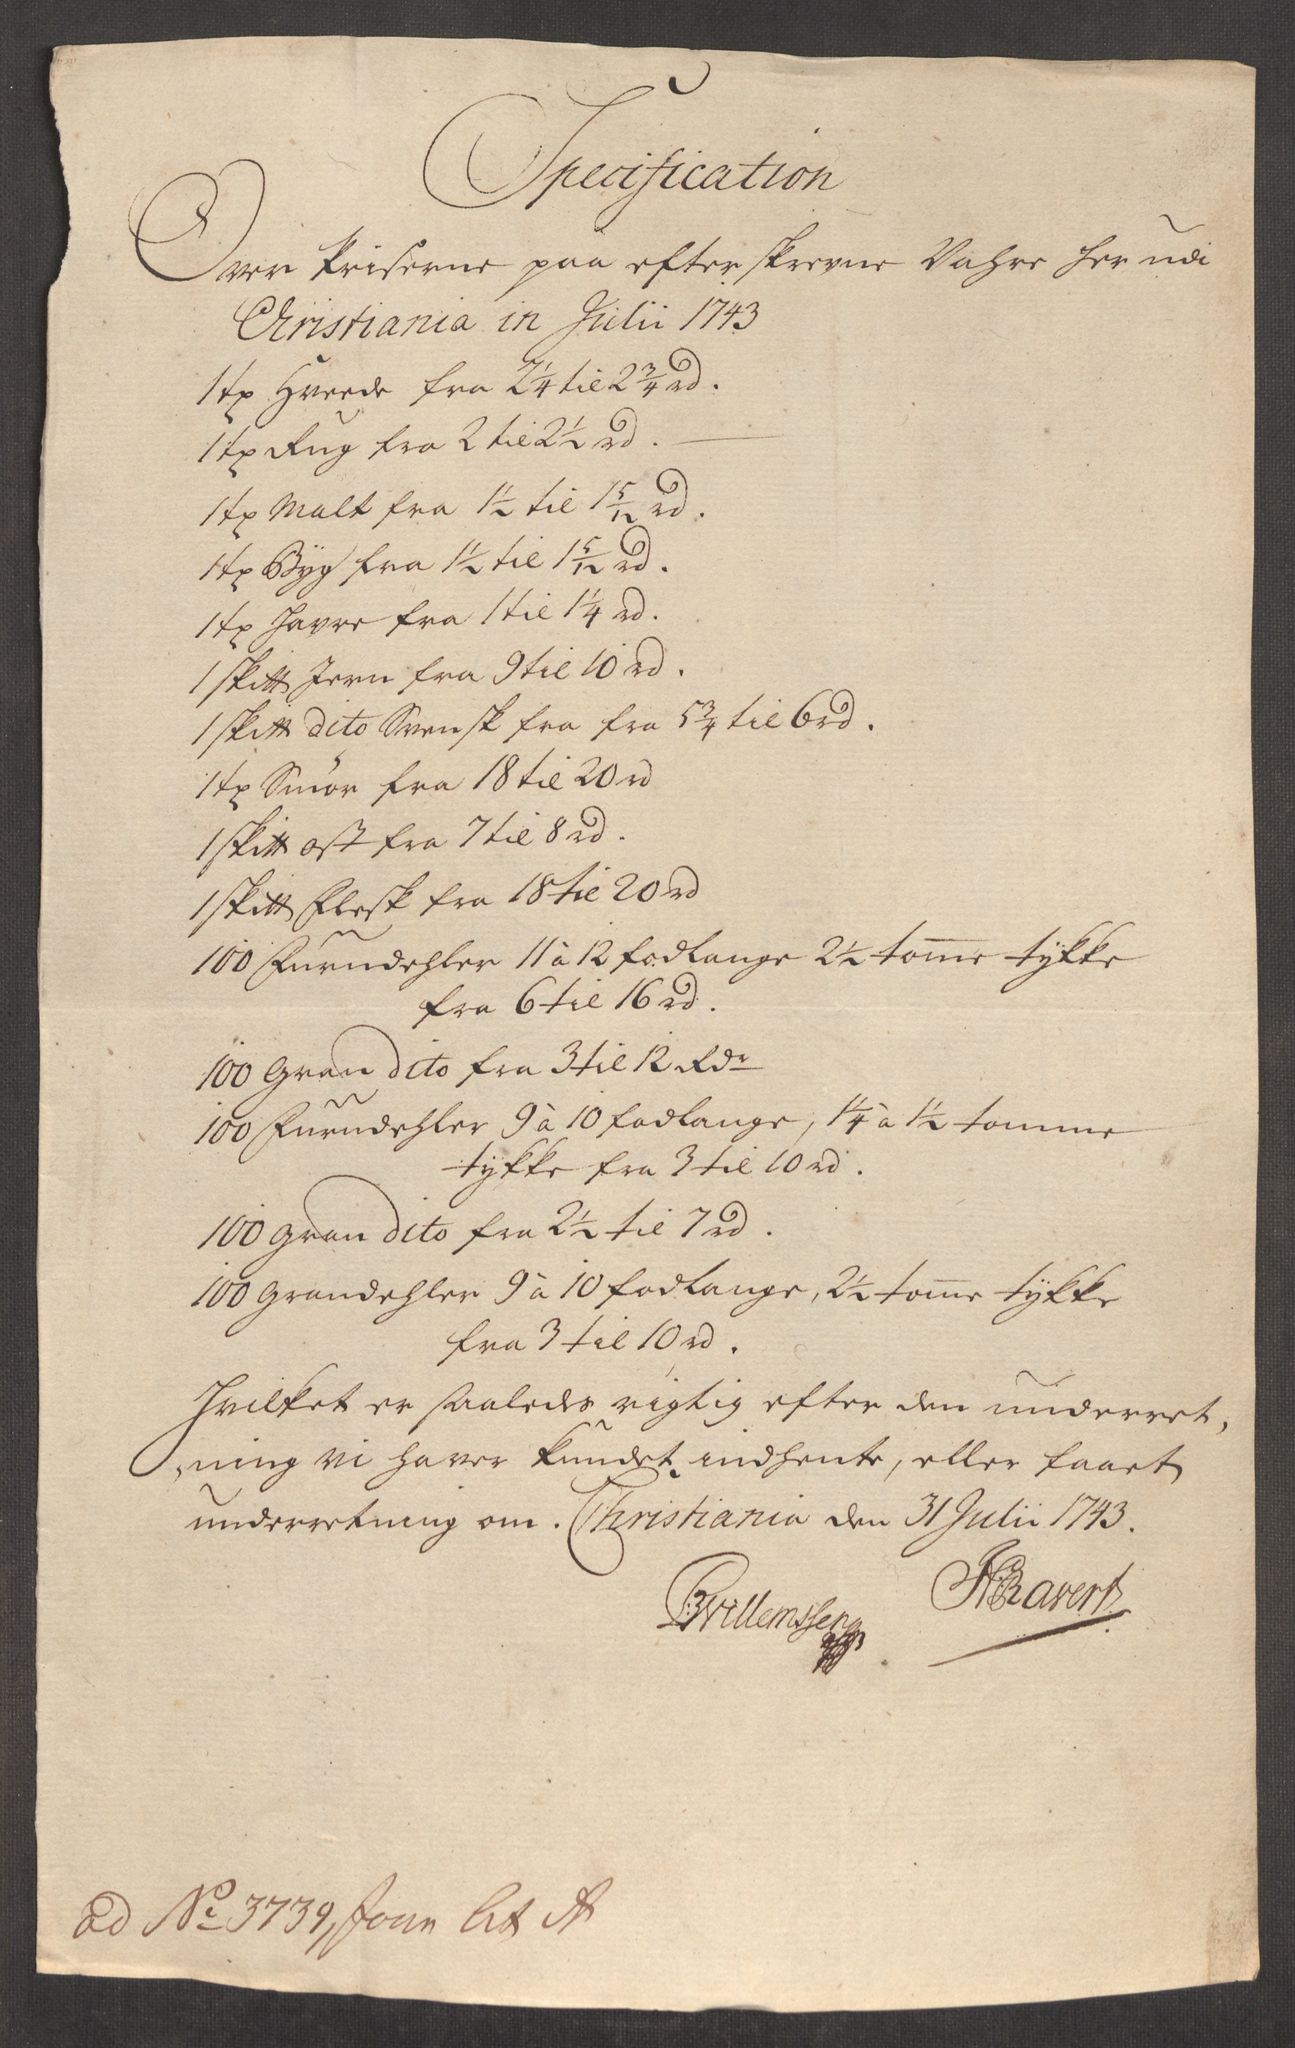 Specification
Over Priserne paa efterskrevne Vahre her udi
Christiania in Julii 1743
1 tƺ Hveede fra 2¼ til 2¾ rd.
1 tƺ Rug fra 2 til 2½ rd.
1 tƺ Malt fra 1½ til 1 5/12 rd.
1 tƺ Byg fra 1½ til 1 5/12 rd.
1 tƺ Havre fra 1 til 1¼ rd.
1 skitt Jern fra 9 til 10 rd.
1 skitt dito Svensk fra fra 5¾ til 6 rd.
1 tƺ Smör fra 18 til 20 rd
1 skitt ost fra 7 til 8 rd.
1 skitt Flesk fra 18 til 20 rd
100 Furudehler 11 à 12 fod lange 2½ tom̅e tykke
fra 6 til 16 rd.
100 Gran dito fra 3 til 12 Rdr
100 Furudehler 9 à 10 fod lange, 1¼ à 1½ tomme
tykke fra 3 til 10 rd.
100 Gran dito fra 2½ til 7 rd.
100 Grandehler 9 à 10 fod lange, 2½ tom̅e tykke
fra 3 til 10 rd.
Hvilket er saaledes rigtig efter den underret,
ning vi haver kundet indhente, eller faaet
underretning om. Christiania den 31 Julii 1743.
BWillemssen HRavert
ad No 3739, Jour Lit A